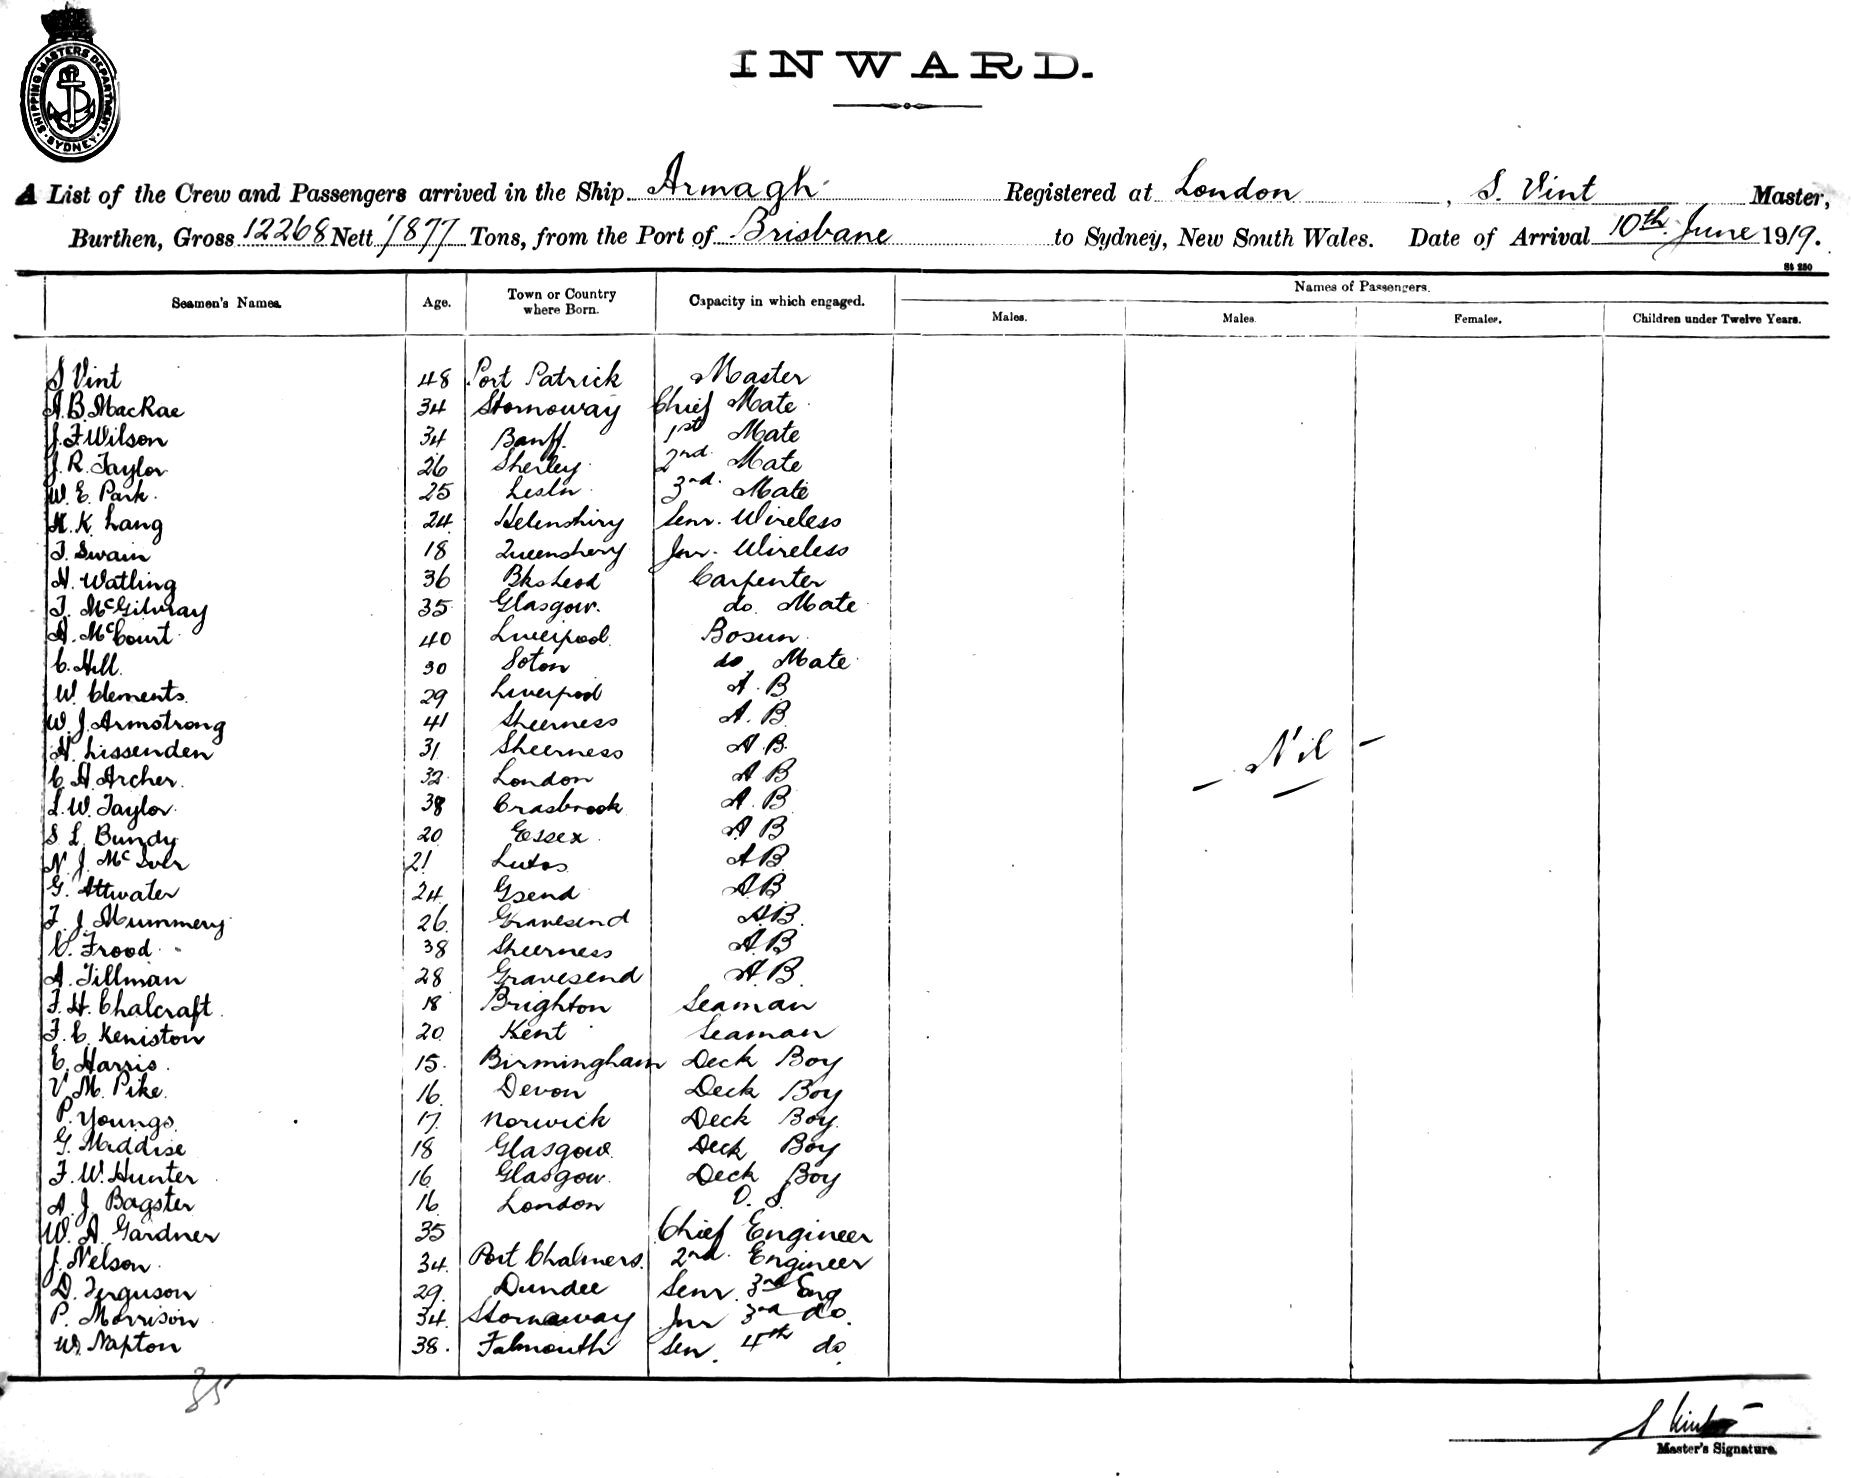 SHIPPING MASTERS DEPARTMENT · SYDNEY ·
INWARD.
A List of the Crew and Passengers arrived in the Ship Armagh Registered at London, S. Vint Master,
Burthen, Gross 12268 Nett 7877 Tons, from the Port of Brisbane to Sydney, New South Wales. Date of Arrival 10th June 1919.
St 250
Seamen's Names. Age. Town or Country where Born. Capacity in which engaged. Names of Passengers.
Males. Males. Females. Children under Twelve Years.
S Vint 48 Port Patrick Master
A. B. MacRae 34 Stornoway Chief Mate
J. F. Wilson 34 Banff. 1st Mate
J. R. Taylor 26 Sherley 2nd. Mate
W. E. Park. 25 3rd. Mate
K. Lang 24 Senr. Wireless
T. Swain 18 Jnr. Wireless
H. Watling 36 Carpenter
T. McGilvray 35 Glasgow. do. Mate
A. McCourt 40 Liverpool Bosun
C. Hill. 30 Soton do Mate
W. Clements 29 Liverpool A. B
W. J. Armstrong 41 Sheerness A. B
H. Lissenden 31 Sheerness A B.
C. H. Archer. 32 London A B
L. W. Taylor 38 Crasbrook A. B
S. L. Bundy 20 Essex A B
N. J. Mc 21 A B
G. Attwater 24 Gsend A B
F. J. Mummery 26 Gravesend A B.
C. Frood 38 Sheerness A B
A. Tillman 28 Gravesend A. B.
F. H. Chalcraft 18 Brighton Seaman
F. C. Keniston 20 Kent Seaman
E. Harris 15. Birmingham Deck Boy
V. M. Pike. 16 Devon Deck Boy
P. Youngs. 17. Norwick Deck Boy.
G. Maddise 18 Glasgow Deck Boy
F. W. Hunter 16 Glasgow Deck Boy
A. J. Bagster 16 London O. S.
W. A. Gardner 35 Chief Engineer
J. Nelson 34 Port Chalmers. 2nd. Engineer
D. Ferguson 29. Dundee Senr. 3rd Eng
P. Morrison 34. Stornaway Jnr 3rd do.
W. Napton 38. Falmouth Sen. 4th do.
- Nil -
35
S Vint
Master's Signature.